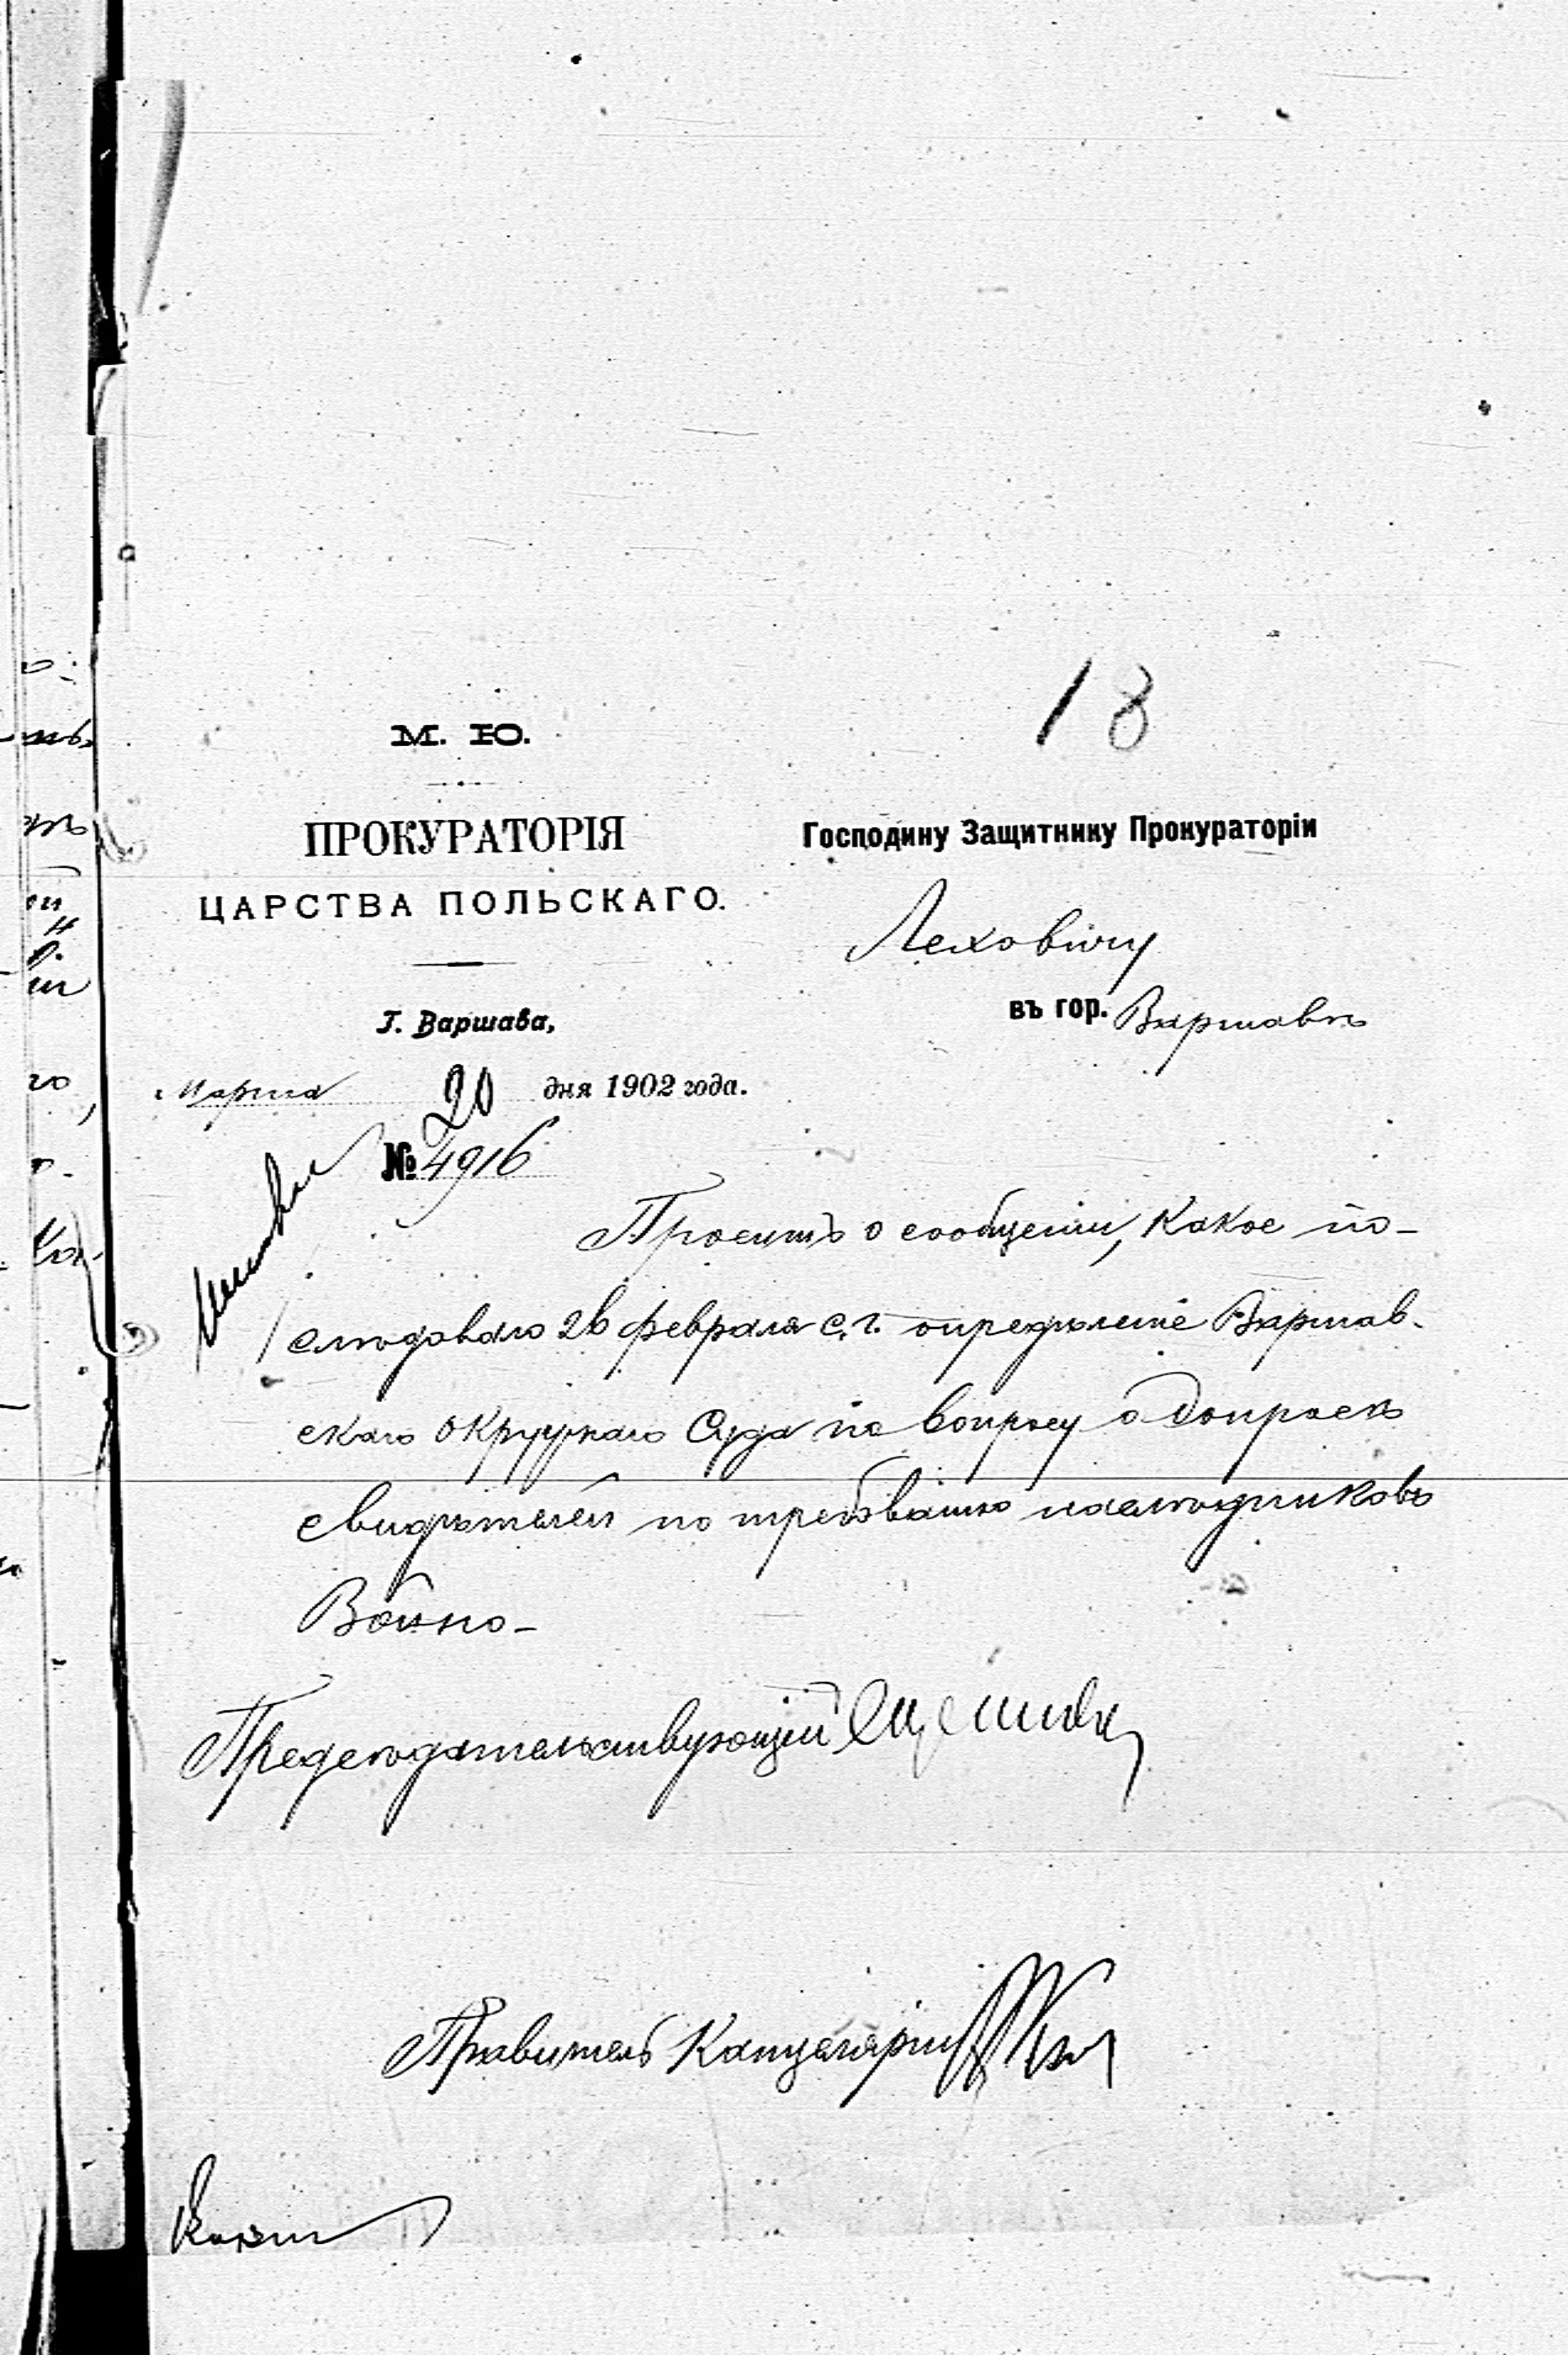 18
М. Ю.
ПРОКУРАТОРІЯ
ЦАРСТВА ПОЛЬСКАГО.
Г. Варшава,
Марта 20 дня 1902 года.
№ 4916
Господину Защитнику Прокураторіи
Леховичу
въ гор. Варшавѣ
Проситъ о сообщеніи, какое по-
слѣдовало 26 февраля с. г. опредѣленіе Варшав-
скаго Окружнаго Суда по вопросу о допросѣ
свидѣтелей по требованію наслѣдниковъ
Войно-
Предсѣдательствующій
Правитель Канцеляріи